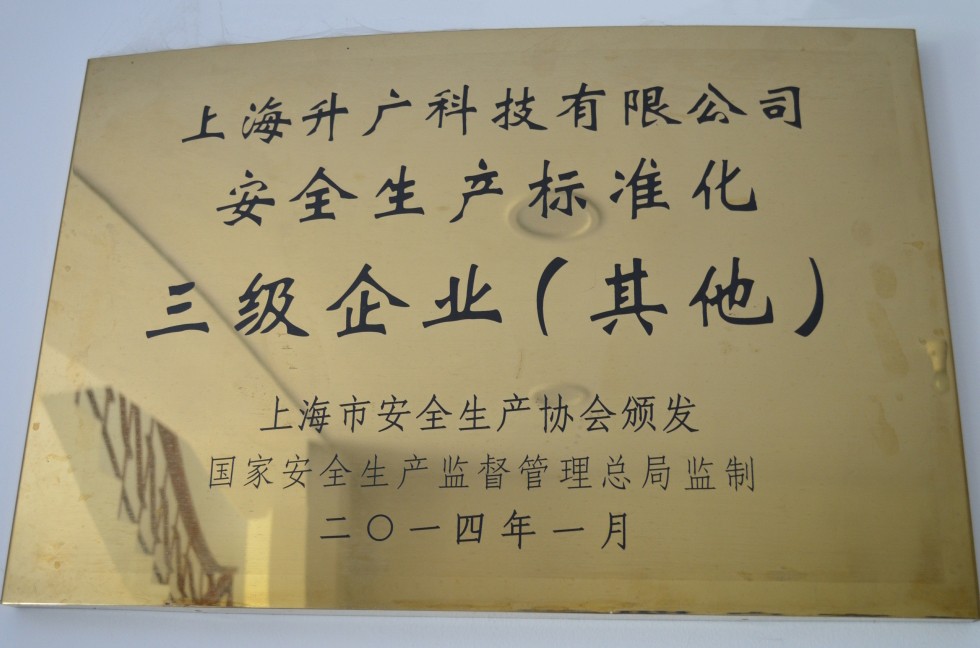 上海升广科技有限公司
安全生产标准化
三级企业(其他)
上海市安全生产协会颁发
国家安全生产监督管理总局监制
二〇一四年一月